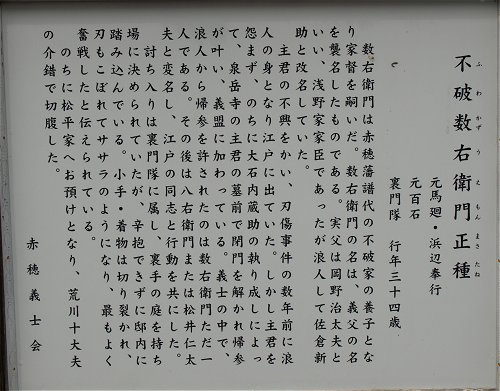 不破数右衛門正種
ふわかずうえもんまさたね
元馬廻・浜辺奉行
元百石
裏門隊　行年三十四歳
数右衛門は赤穂藩譜代の不破家の養子とな
り家督を嗣いだ。数右衛門の名は、義父の名
を襲名したものである。実父は岡野治太夫と
いい、浅野家家臣であったが浪人して佐倉新
助と改名していた。
主君の不興をかい、刃傷事件の数年前に浪
人の身となり江戸に出ていた。しかし主君を
怨まず、のちに大石内蔵助の執り成しによっ
て、泉岳寺の主君の墓前で閉門を解かれ帰参
が叶い、義盟に加わっている。義士の中で、
浪人から帰参を許されたのは数右衛門ただ一
人である。その後は八右衛門または松井仁太
夫と変名し、江戸の同志と行動を共にした。
討ち入りは裏門隊に属し、裏手の庭を持ち
場に決められていたが、辛抱できずに邸内に
踏み込んでいる。小手・着物は切り裂かれ、
刃もこぼれてササラのようになり、最もよく
奮戦したと伝えられている。
のちに松平家へお預けとなり、荒川十大夫
の介錯で切腹した。
赤穂義士会